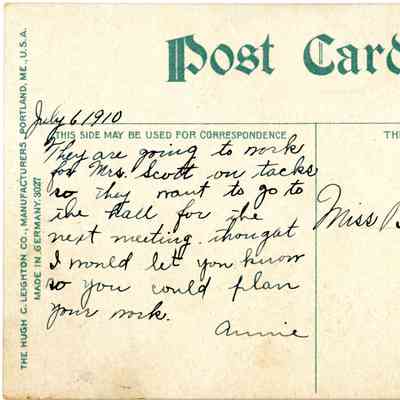 Post Card
July 6 1910
THIS SIDE MAY BE USED FOR CORRESPONDENCE
TH
They are going to work
for Mrs. Scott on tacks
so they want to go to
the hall for the
next meeting. thought
I would let you know
so you could plan
your work.
Annie
Miss B
THE HUGH C. LEIGHTON CO., MANUFACTURERS, PORTLAND, ME., U.S.A.
MADE IN GERMANY. 3027